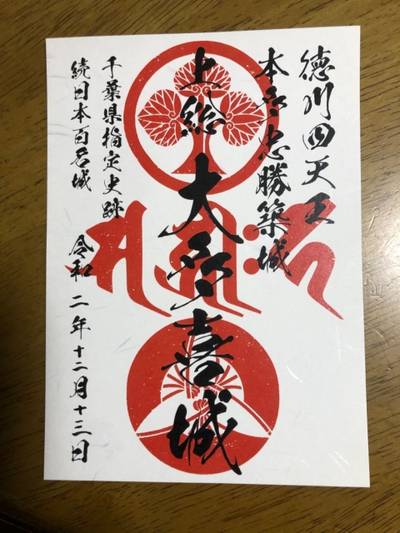 徳川四天王
本多忠勝築城
上総 大多喜城
千葉県指定史跡
続日本百名城
令和二年十二月十三日